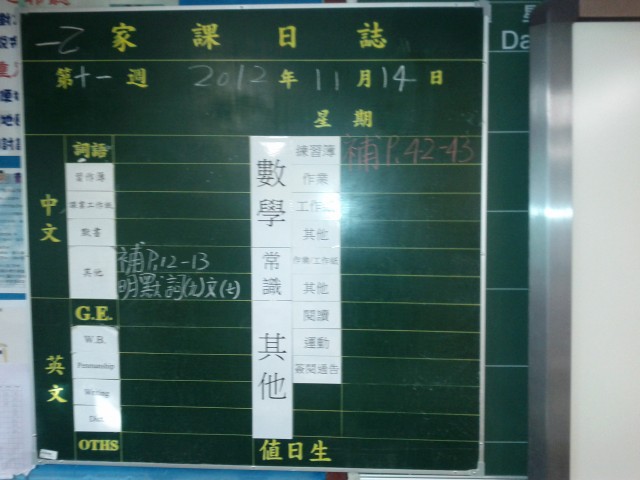 一乙 家課日誌
第十一週 2012年11月14日
星期
中文
詞語
習作簿
默書
其他 補P.12-13
明默詞(九)文(七)
英文
G.E.
W.B.
Penmanship
Writing
Dict.
OTHS
數學
練習簿 補P.42-43
作業
工作紙
其他
常識
作業/工作紙
其他
其他
閱讀
運動
簽閱通告
值日生
Da